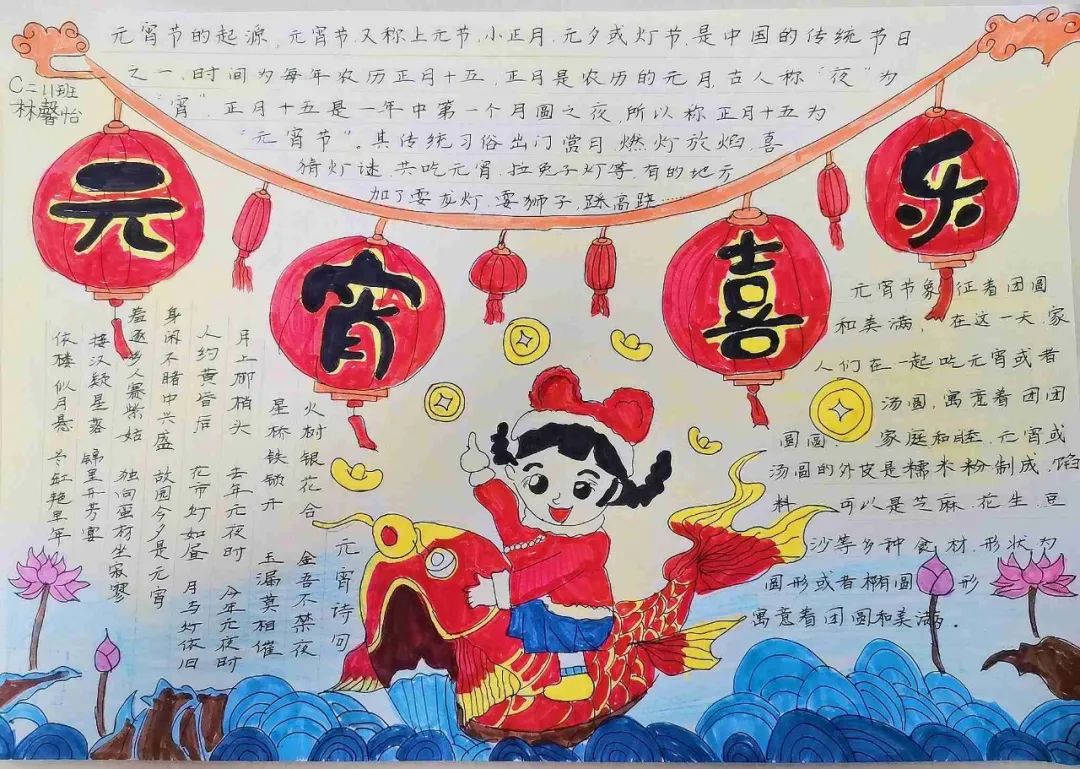 元宵节的起源,元宵节又称上元节,小正月,元夕或灯节,是中国的传统节日
之一,时间为每年农历正月十五,正月是农历的元月,古人称"夜"为
"宵",正月十五是一年中第一个月圆之夜,所以称正月十五为
"元宵节"。其传统习俗出门赏月,燃灯放焰,喜
猜灯谜,共吃元宵,拉兔子灯等,有的地方
加了耍龙灯,耍狮子,踩高跷……
C二11班
林馨怡
元
宵
喜
乐
元宵节象征着团圆
和美满,在这一天,家
人们在一起吃元宵或者
汤圆,寓意着团团
圆圆. 家庭和睦.元宵或
汤圆的外皮是糯米粉制成,馅
料 可以是芝麻.花生.豆
沙等多种食材,形状为
圆形或者椭圆 形
寓意着团圆和美满.
元宵诗句
火树银花合 金吾不禁夜
星桥铁锁开 玉漏莫相催
月上柳梢头 去年元夜时 今年元夜时
人约黄昏后 花市灯如昼 月与灯依旧
身闲不睹中兴盛 故园今夕是元宵
羞逐乡人赛紫姑 独向蛮村坐寂寥
接汉疑星落 锦里开芳宴
依楼似月悬 红艳早年